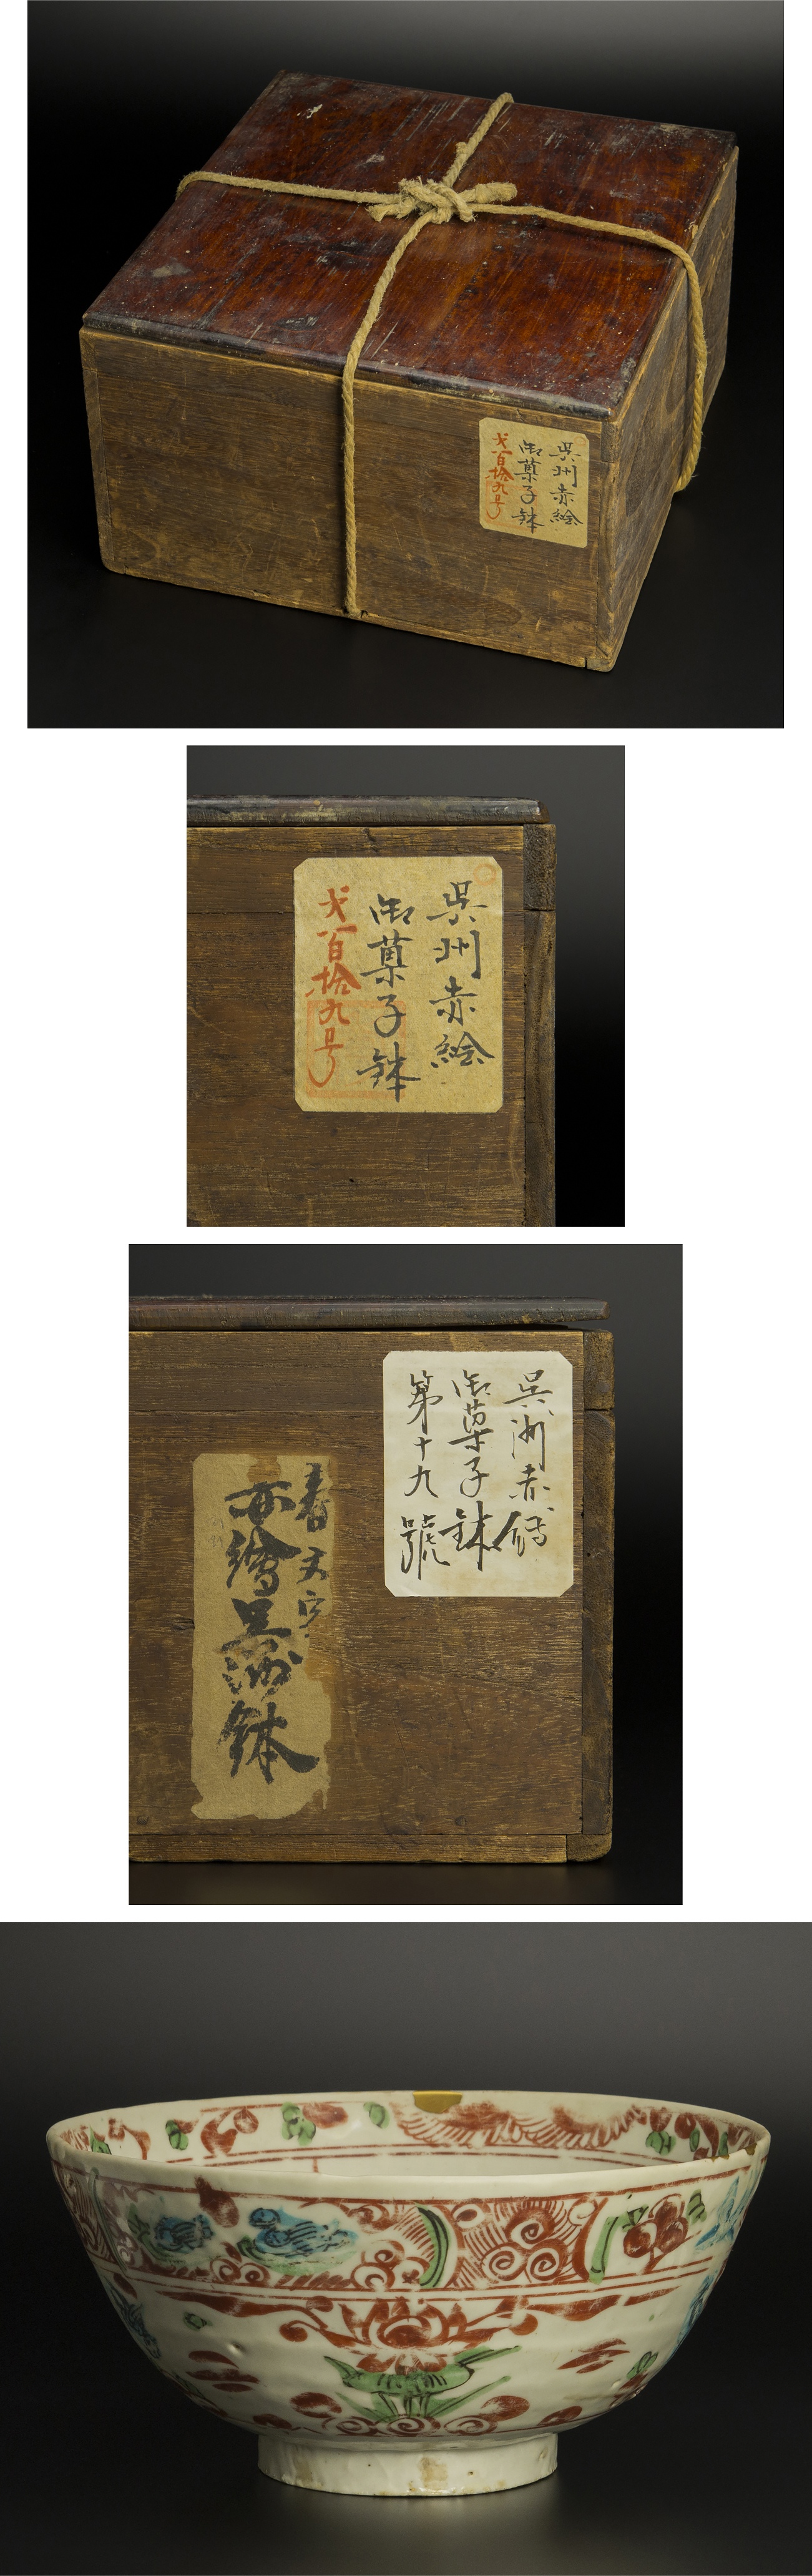 呉州赤絵
御菓子鉢
弐百拾九号
呉州赤絵
御菓子鉢
弐百拾九号
呉洲赤絵
御菓子鉢
第十九號
赤繪呉洲鉢